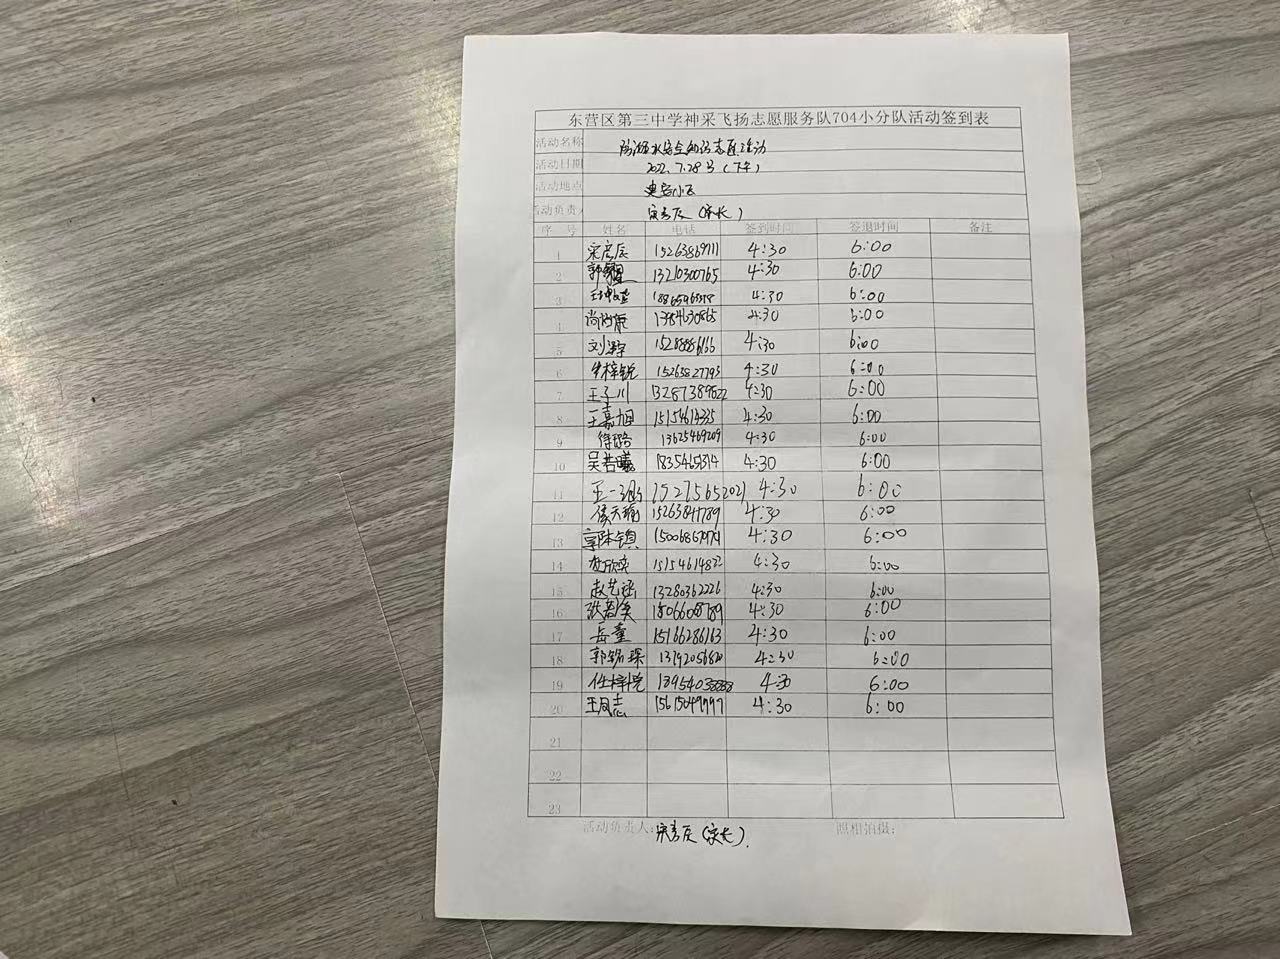 东营区第三中学神采飞扬志愿服务队704小分队活动签到表
活动名称 防溺水安全知识志愿活动
活动日期 2022.7.28号(下午)
活动地点 建安小区
活动负责人 宋彦辰(家长)
序 号 姓名 电话 签到时间 签退时间 备注
1 宋彦辰 15263869711 4:30 6:00
2 13210300765 4:30 6:00
3 4:30 6:00
4 13854630865 4:30 6:00
5 15288886166 4:30 6:00
6 牟梓锐 15265827793 4:30 6:00
7 王子川 13287389622 4:30 6:00
8 王嘉旭 15154614335 4:30 6:00
9 13625469209 4:30 6:00
10 吴若曦 18354651314 4:30 6:00
11 15275652021 4:30 6:00
12 侯天瑜 15263841789 4:30 6:00
13 4:30 6:00
14 15154614822 4:30 6:00
15 赵艺涵 13280362226 4:30 6:00
16 4:30 6:00
17 岳童 15166286163 4:30 6:00
18 郭铭琛 13792056820 4:30 6:00
19 任梓悦 4:30 6:00
20 王风志 4:30 6:00
21
22
23
活动负责人:宋彦辰(家长). 照相拍摄: